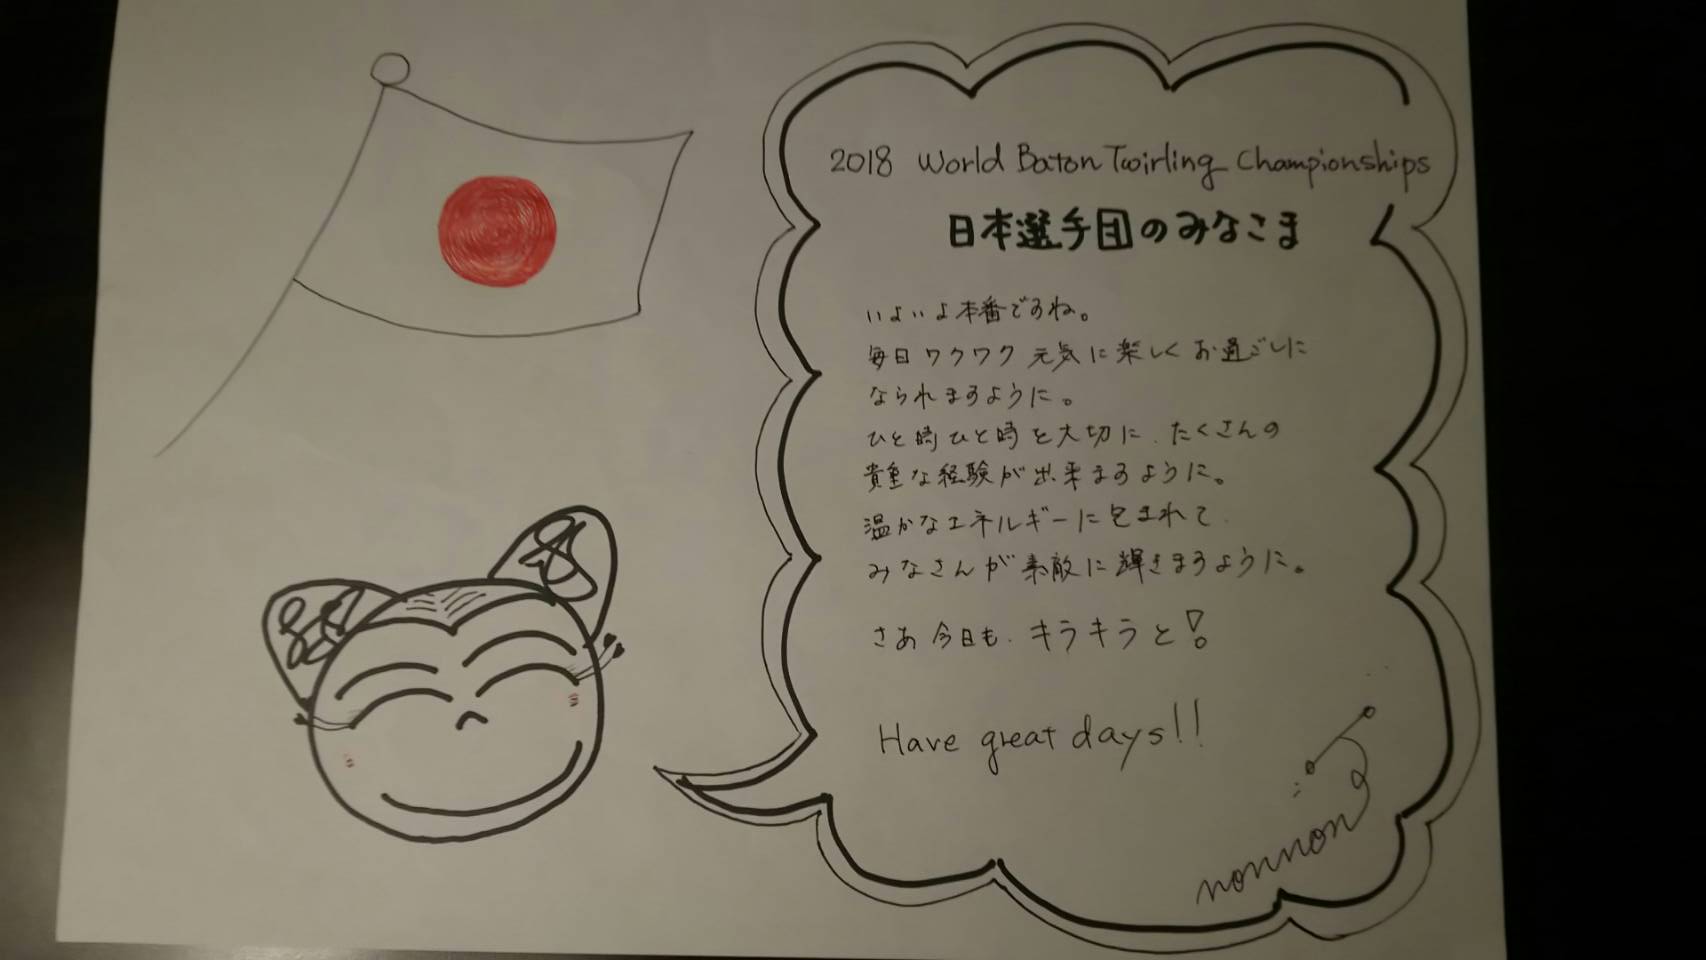 2018 World Baton Twirling Championships
日本選手団のみなこま
いよいよ本番ですね。
毎日ワクワク元気に楽しくお過ごしに
なられますように。
ひと時ひと時を大切に、たくさんの
貴重な経験が出来ますように。
温かなエネルギーに包まれて、
みなさんが素敵に輝きますように。
さあ今日も、キラキラと!
Have great days!!
nonnon